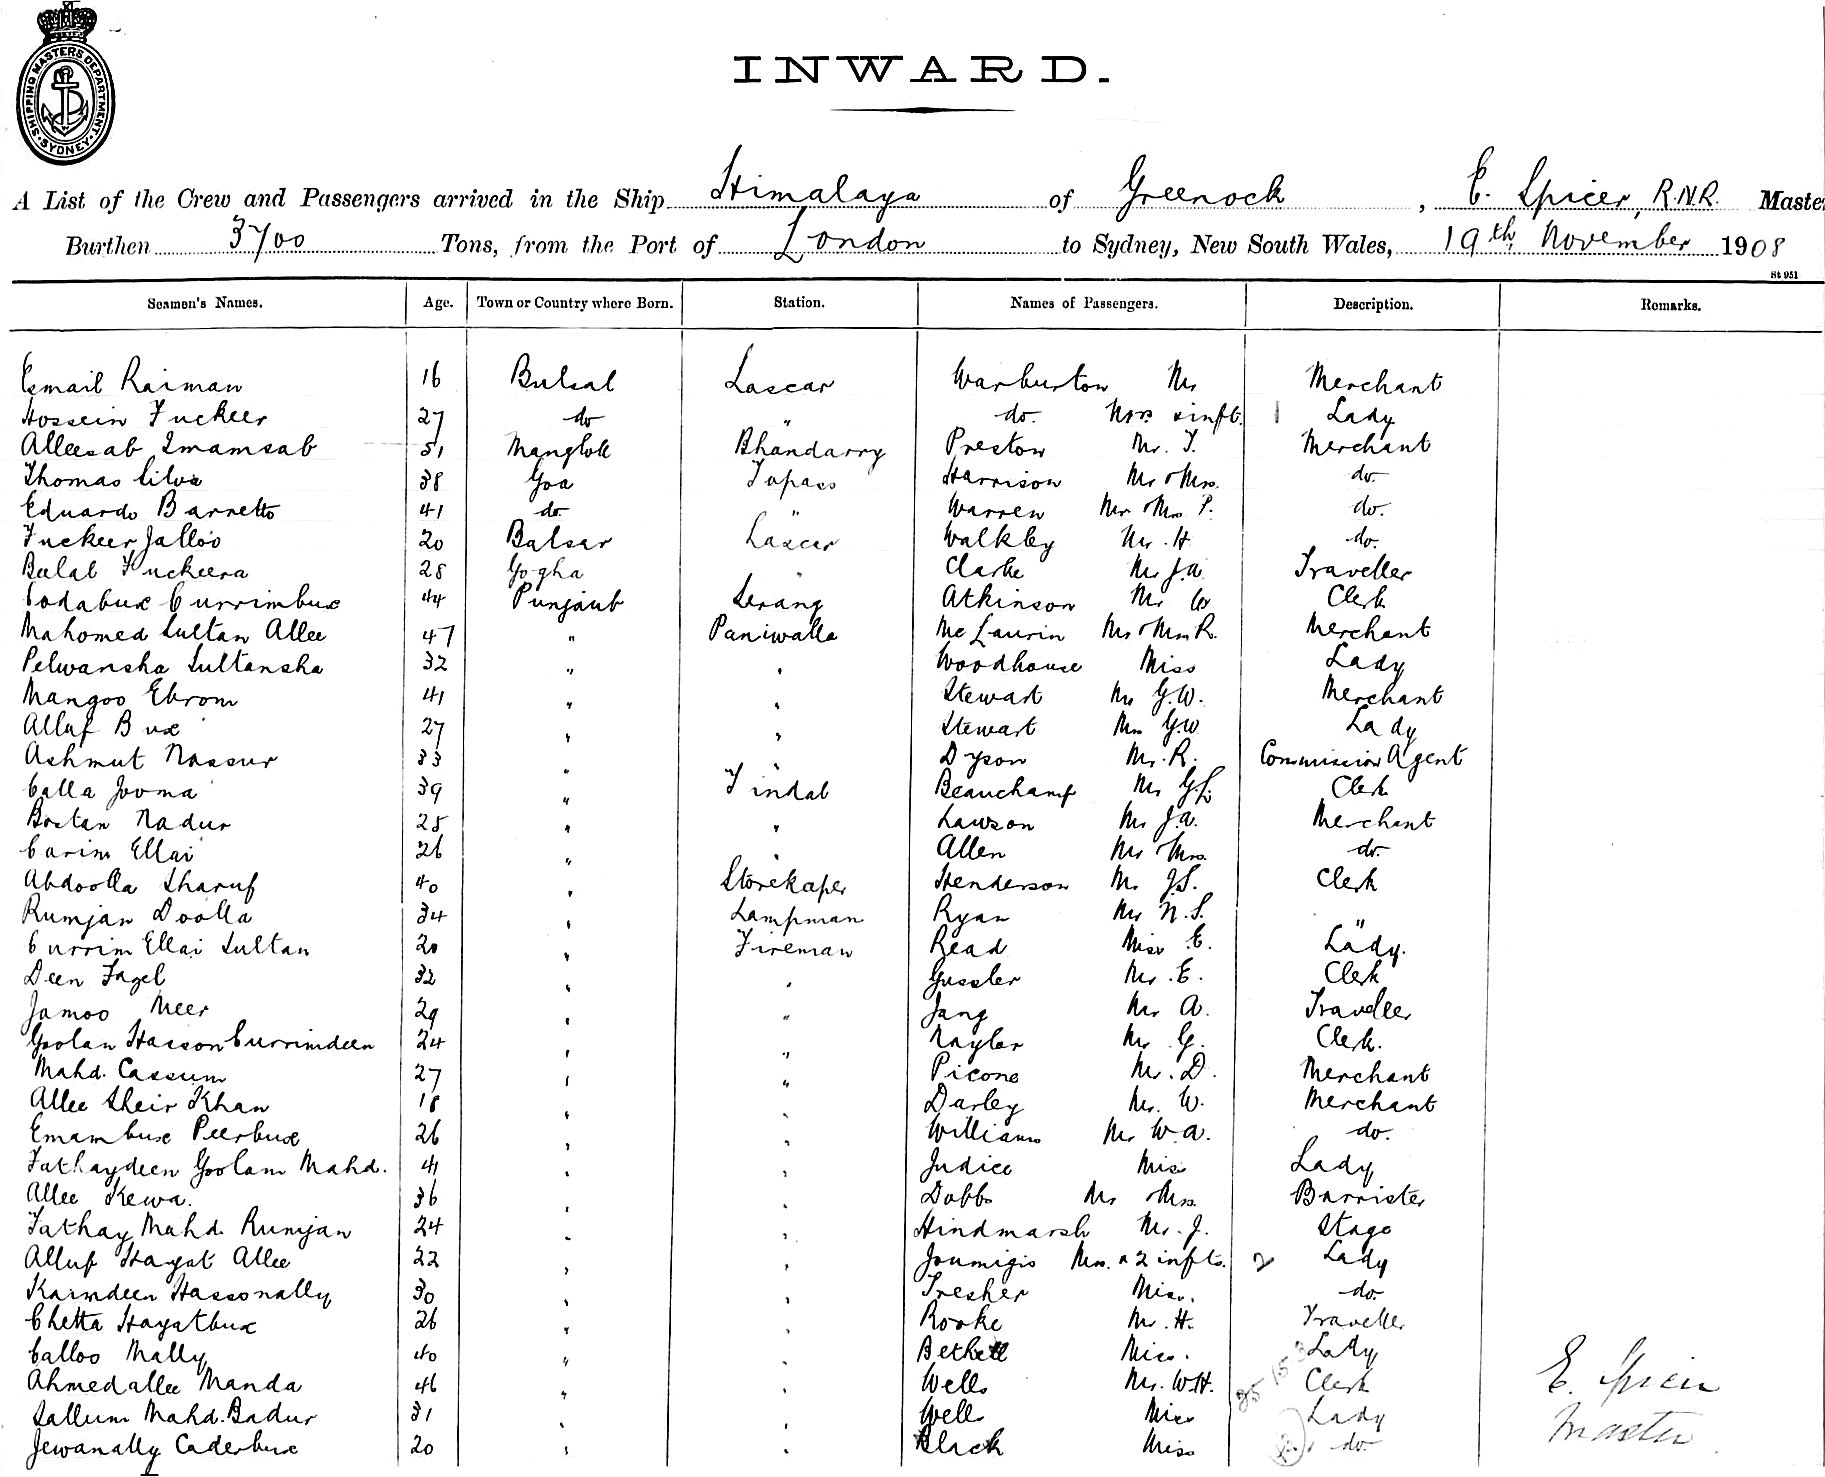 SHIPPING MASTERS DEPARTMENT
SYDNEY
INWARD.
A List of the Crew and Passengers arrived in the Ship Himalaya of Greenock, E. Spicer, R.N.R. Master
Burthen 3700 Tons, from the Port of London to Sydney, New South Wales, 19th November 1908
St 951
Seamen's Names. Age. Town or Country where Born. Station. Names of Passengers. Description. Remarks.
Esmail Raiman 16 Bulsal Lascar Warburton Mr Merchant
Hossein Fuckeer 27 do " do. Mrs & inft. 1 Lady
Alleesab Imamsab 51 Manglole Bhandarry Preston Mr. T. Merchant
Thomas Silva 38 Goa Topass Harrison Mr & Mrs. do.
Eduardo Barretto 41 do. " Warren Mr & Mrs P. do.
Fuckeer Jalloo 20 Balsar Lascar Walkley Mr. H. do.
Bulal Fuckeera 28 Gogha " Clarke Mr J.A. Traveller
Codabux Currimbux 44 Punjaub Serang Atkinson Mr W Clerk
Mahomed Sultan Allee 47 " Paniwalla McLaurin Mr & Mrs R. Merchant
Pelwansha Sultansha 32 " " Woodhouse Miss Lady
Mangoo Ebrom 41 " " Stewart Mr G.W. Merchant
Alluf Bux 27 " " Stewart Mrs G.W. Lady
Ashmut Nassur 33 " " Dyson Mr. R. Commission Agent
Calla Jooma 39 " Tindal Beauchamp Mr G.L. Clerk
Bostan Nadur 25 " " Lawson Mr J.A. Merchant
Carim Ellai 26 " " Allen Mr & Mrs. do.
Abdoolla Sharuf 40 " Storekaper Henderson Mr J.S. Clerk
Rumjan Doolla 34 " Lampman Ryan Mr N.S. "
Currim Ellai Sultan 20 " Fireman Read Miss E. Lady.
Deen Fazel 32 " " Gussler Mr. E. Clerk
Jamoo Meer 29 " " Jang Mr A. Traveller
Goolan Hasson Currimdeen 24 " " Naylor Mr. G. Clerk.
Mahd. Cassum 27 " " Picone Mr. D. Merchant
Allee Sheir Khan 18 " " Darley Mr. W. Merchant
Emambux Peerbux 26 " " Williams Mr W.A. do.
Fathaydeen Goolam Mahd. 41 " " Judice Miss Lady
Allee Kewa. 36 " " Dobbs Mr & Mrs. Barrister
Fathay Mahd. Rumjan 24 " " Hindmarsh Mr. J. Stage
Alluf Hayat Allee 22 " " Joumigis Mrs. & 2 infts. 2 Lady
Karimdeen Hassonally 30 " " Tresher Miss. do.
Chetta Hayatbux 26 " " Rooke Mr. H. Traveller
Calloo Mally 40 " " Bethell Miss. Lady
Ahmedallee Manda 46 " " Wells Mr. W.H. Clerk
Sallum Mahd. Badur 31 " " Wells Miss Lady
Jewanally Caderbux 20 " " Black Miss do.
E. Spicer
Master